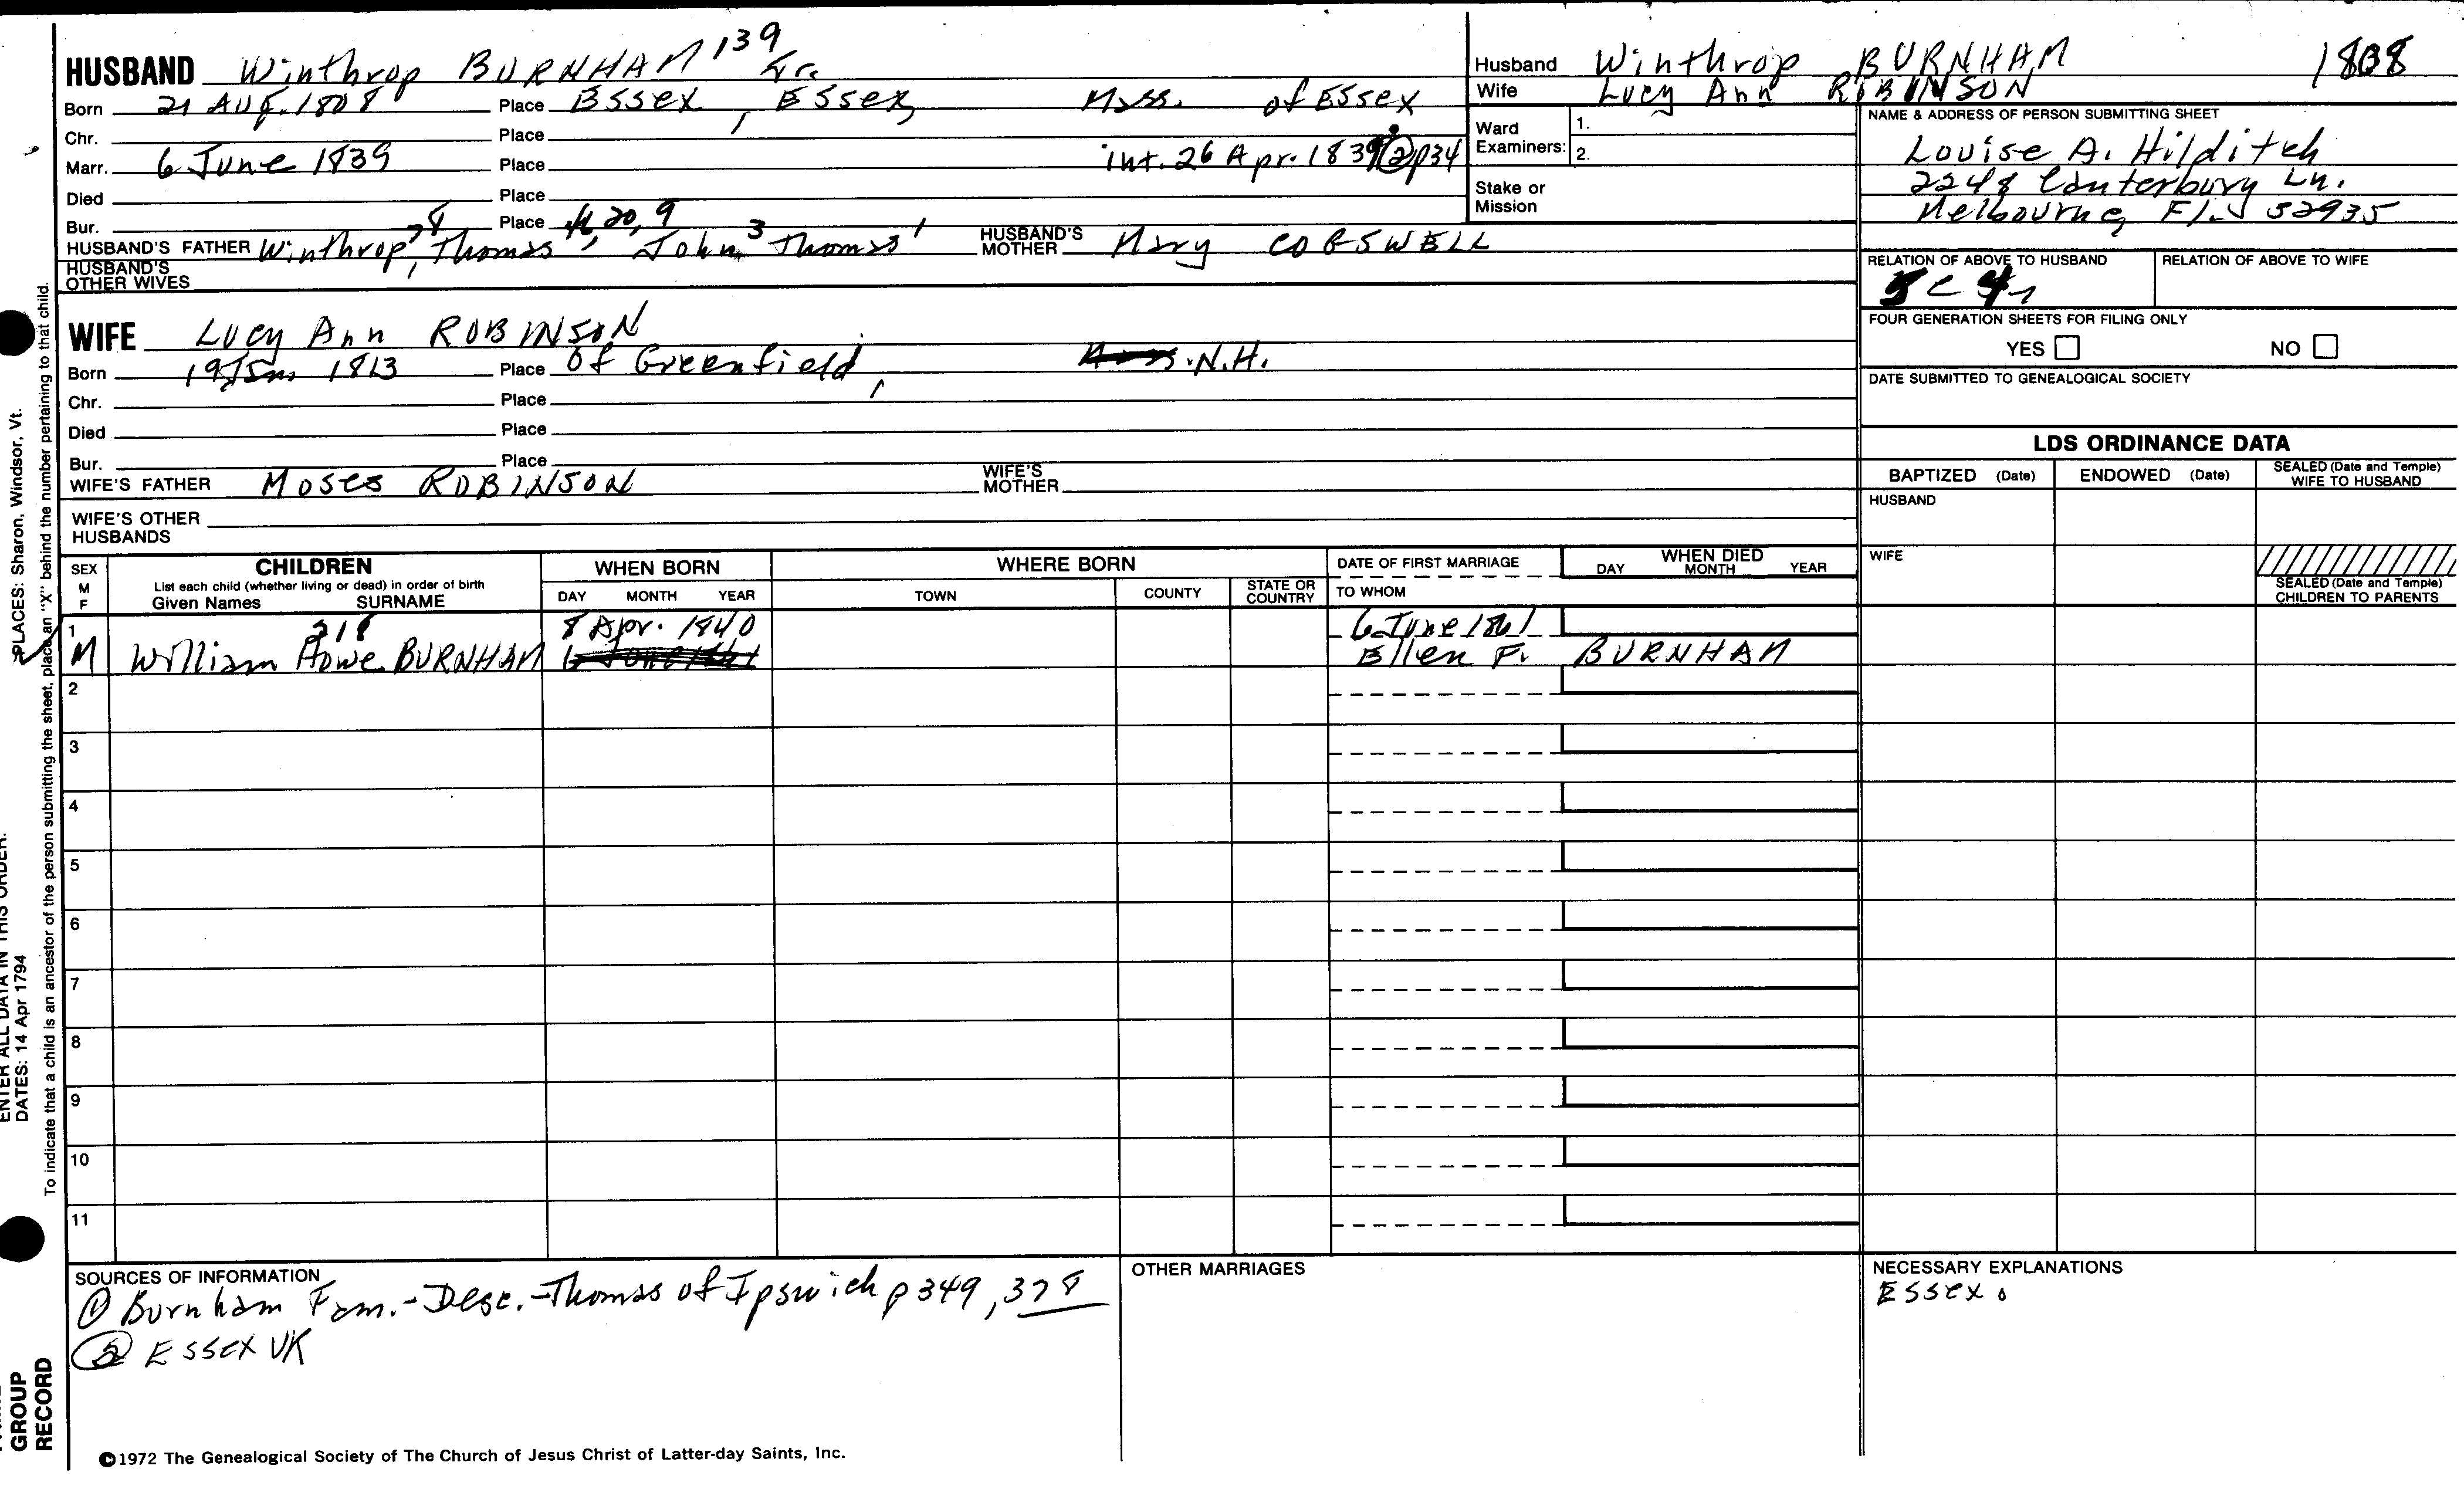 HUSBAND Winthrop BURNHAM 139 Jr.
Born 21 Aug. 1808 Place Essex, Essex, Mass. of Essex
Chr. Place
Marr. 6 June 1839 Place int. 26 Apr. 1839 (2) p34
Died Place
Bur. Place
HUSBAND'S FATHER Winthrop, 78 Thomas, 46 20, 9 John 3 Thomas 1 HUSBAND'S MOTHER Mary COGSWELL
HUSBAND'S OTHER WIVES
WIFE Lucy Ann ROBINSON
Born 19 Jan 1813 Place of Greenfield, N.H.
Chr. Place
Died Place
Bur. Place
WIFE'S FATHER Moses ROBINSON WIFE'S MOTHER
WIFE'S OTHER HUSBANDS
Husband Winthrop BURNHAM 1808
Wife Lucy Ann ROBINSON
Ward Examiners: 1.
2.
Stake or Mission
NAME & ADDRESS OF PERSON SUBMITTING SHEET
Louise A. Hilditch
2248 Canterbury Ln.
Melbourne, Fl. 32935
RELATION OF ABOVE TO HUSBAND RELATION OF ABOVE TO WIFE
FOUR GENERATION SHEETS FOR FILING ONLY
YES NO
DATE SUBMITTED TO GENEALOGICAL SOCIETY
LDS ORDINANCE DATA
BAPTIZED (Date) ENDOWED (Date) SEALED (Date and Temple) WIFE TO HUSBAND
HUSBAND
WIFE
SEALED (Date and Temple) CHILDREN TO PARENTS
SEX M F CHILDREN WHEN BORN WHERE BORN DATE OF FIRST MARRIAGE WHEN DIED
List each child (whether living or dead) in order of birth
Given Names SURNAME DAY MONTH YEAR TOWN COUNTY STATE OR COUNTRY TO WHOM DAY MONTH YEAR
1 218 8 Apr. 1840 6 June 1861
M William Howe BURNHAM Ellen F. BURNHAM
2
3
4
5
6
7
8
9
10
11
SOURCES OF INFORMATION
(1) Burnham Fam.-Desc.-Thomas of Ipswich p 349, 378
(2) ESSEX VR
OTHER MARRIAGES
NECESSARY EXPLANATIONS
Essex.
©1972 The Genealogical Society of The Church of Jesus Christ of Latter-day Saints, Inc.
GROUP RECORD
ENTER ALL DATA IN THIS ORDER:
DATES: 14 Apr 1794
PLACES: Sharon, Windsor, Vt.
To indicate that a child is an ancestor of the person submitting the sheet, place an "X" behind the number pertaining to that child.